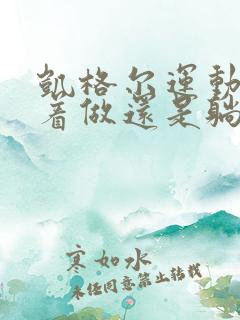 凱格尔運動
着做還是躺
寒如水
未经同意禁止转载